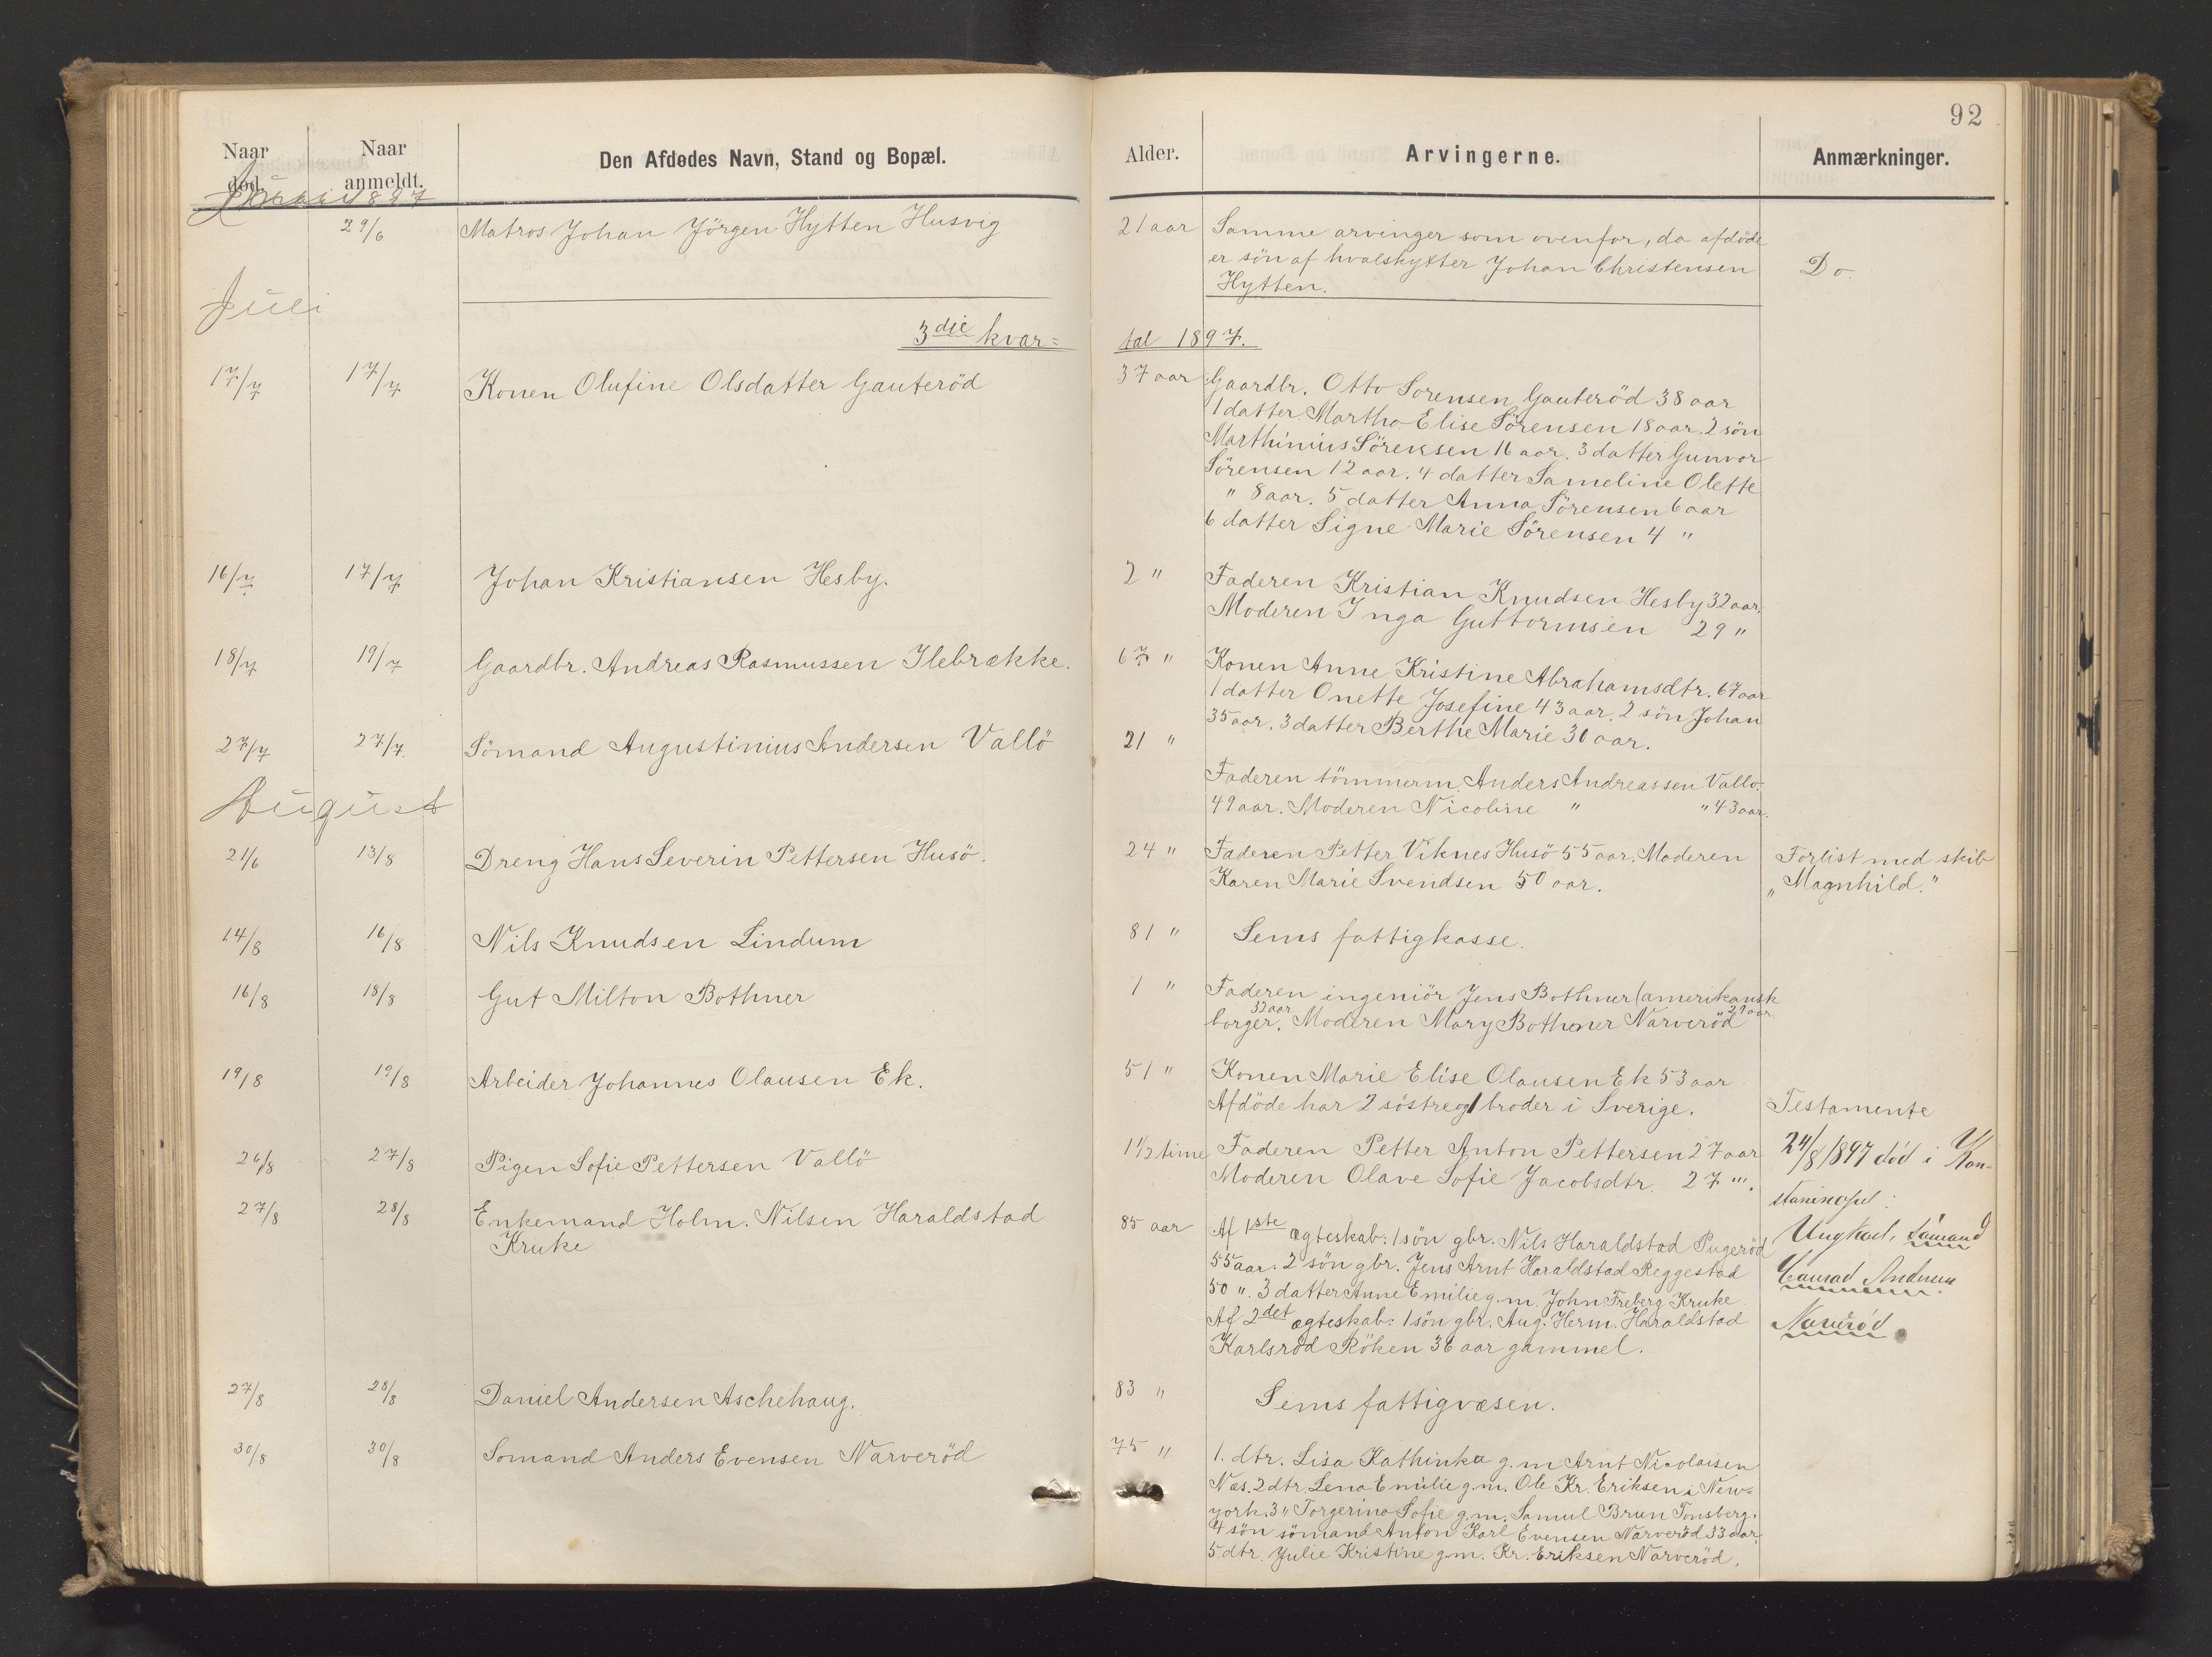 92
Naar død.
Naar anmeldt.
Den Afdødes Navn, Stand og Bopæl.
Alder.
Arvingerne.
Anmærkninger.
1897
29/6 Matros Johan Jörgen Hytten Husvig 21 aar Samme arvinger som ovenfor, da afdöde
er sön af hvalskytter Johan Christensen Do.
Hytten.
Juli
3die kvartal 1897.
17/7 17/7 Konen Olufine Olsdatter Gauteröd 37 aar Gaardbr. Otto Sorensen Gauteröd 38 aar
1 datter Martha Elise Sörensen 18 aar. 2 sön
Marthinius Sörensen 16 aar. 3 datter Gunvor
Sörensen 12 aar. 4 datter Sameline Olette
" 8 aar. 5 datter Anna Sörensen 6 aar
6 datter Signe Marie Sörensen 4 "
16/7 17/7 Johan Kristiansen Hesby. 2 " Faderen Kristian Knudsen Hesby 32 aar.
Moderen Inga Guttormsen 29 "
18/7 19/7 Gaardbr. Andreas Rasmussen Ilebrække. 67 " Konen Anne Kristine Abrahamsdtr. 67 aar
1 datter Onette Josefine 43 aar. 2 sön Johan
35 aar. 3 datter Berthe Marie 30 aar.
27/7 27/7. Sömand Augustinius Andersen Vallö 21 "
Faderen tömmerm. Anders Andreassen Vallö.
49 aar. Moderen Nicoline " " 43 aar.
August
21/6 13/8 Dreng Hans Severin Pettersen Husö. 24 " Faderen Petter Viknes Husö 55 aar. Moderen Forlist med skib
Karen Marie Svendsen 50 aar. "Magnhild."
14/8 16/8 Nils Knudsen Lindum 81 " Sems fattigkasse.
16/8 18/8 Gut Milton Bothner 1 " Faderen ingeniör Jens Bothner (amerikansk
borger. 32 aar Moderen Mary Bothner Narveröd 29 aar.
19/8 19/8 Arbeider Johannes Olausen Ek. 51 " Konen Marie Elise Olausen Ek 53 aar
Afdöde har 2 söstre og 1 broder i Sverige. Testamente
26/8 27/8 Pigen Sofie Pettersen Vallö 1 1/2 time Faderen Petter Anton Pettersen 27 aar 24/8 1897 död i Kon-
Moderen Olave Sofie Jacobsdtr. 27 ". staninopel:
27/8 28/8 Enkemand Holm. Nilsen Haraldstad 85 aar Af 1ste ægteskab: 1 sön gbr. Nils Haraldstad Pugeröd Ungkarl, Sömand
Kruke 55 aar. 2 sön gbr. Jens Arnt Haraldstad Reggestad
50 ". 3 datter Anne Emilie g.m. John Freberg Kruke Conrad Andersen.
Af 2det ægteskab: 1 sön gbr. Aug. Herm. Haraldstad Narveröd.
Karlsröd Röken 36 aar gammel.
27/8 28/8 Daniel Andersen Aschehaug. 83 " Sems fattigvæsen.
30/8 30/8 Somand Anders Evensen Narveröd 75 " 1. dtr. Lisa Kathinka g.m Arnt Nicolaisen
Næs. 2 dtr. Lena Emilie g.m. Ole Kr. Eriksen i New=
york. 3 " Torgerina Sofie g.m. Samul Brun Tonsberg.
4 sön sömand Anton Karl Evensen Narveröd 33 aar.
5. dtr. Julie Kristine g.m. Kr. Eriksen Narveröd.